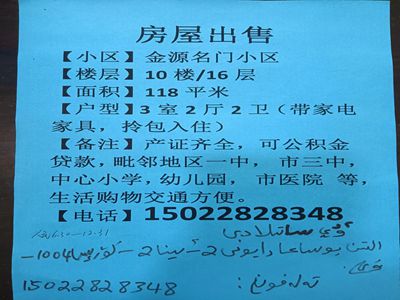 房屋出售
【小区】金源名门小区
【楼层】10 楼/16 层
【面积】118 平米
【户型】3 室 2 厅 2 卫（带家电
家具，拎包入住）
【备注】产证齐全，可公积金
贷款，毗邻地区一中，市三中，
中心小学，幼儿园，市医院 等，
生活购物交通方便。
【电话】15022828348
ئۆي سېتىلادى
-1004
15022828348